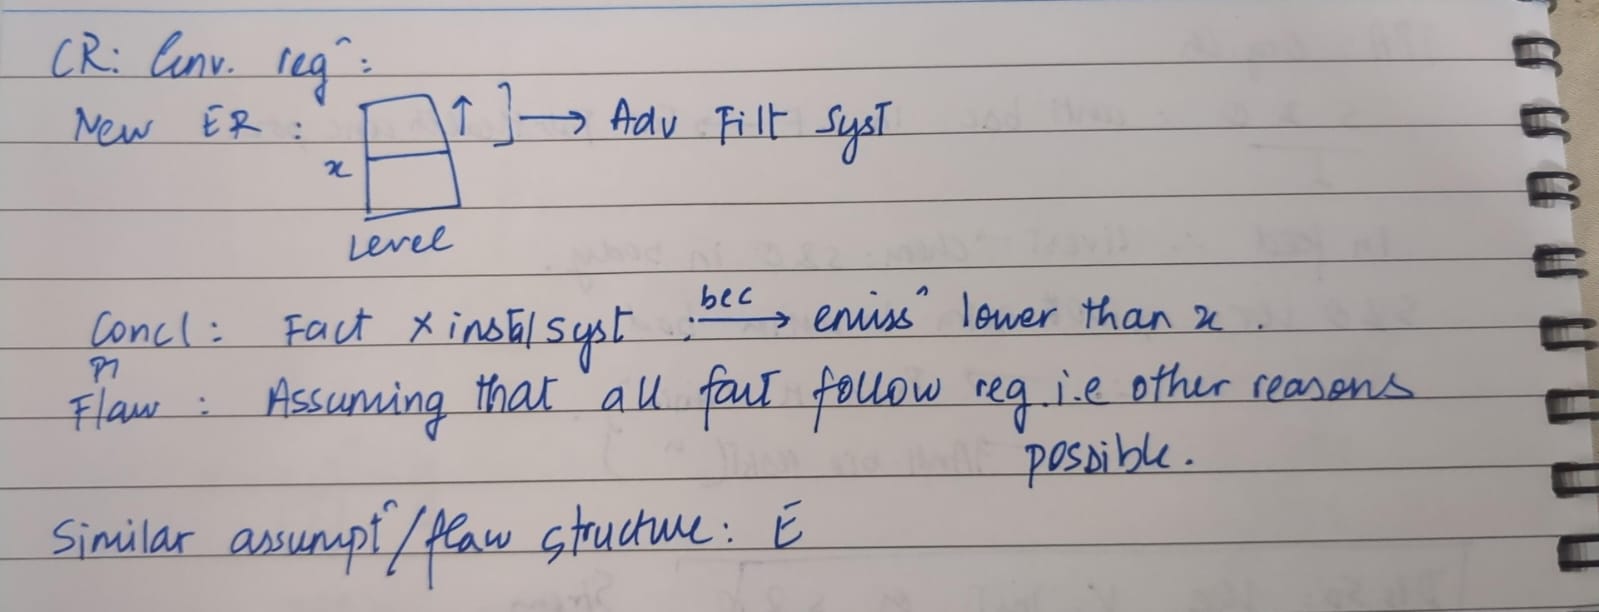 CR: Env. reg^:
New ER: ↑ ] → Adv Filt Syst
x
Level
Concl: Fact × instal syst : bec → emiss^ lower than x.
Flaw: Assuming that all fact follow reg. i.e other reasons
possible.
Similar assumpt^/flaw structure: E